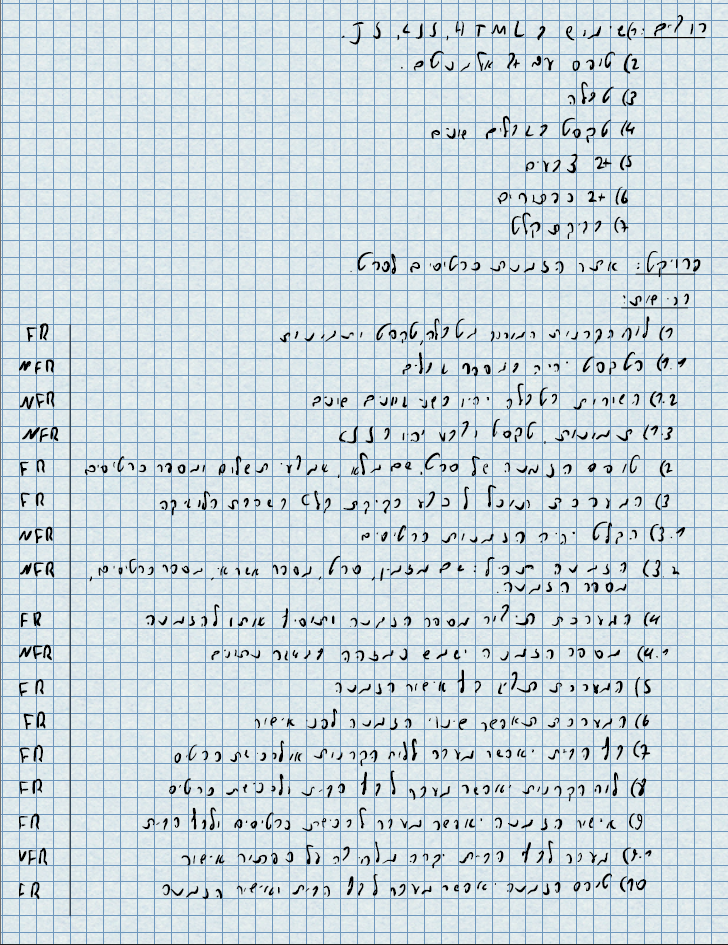 כללים: 1) שימוש ב HTML, CSS, JS.
2) טופס עם +7 אלמנטים.
3) טבלה
4) טקסט בגדלים שונים
5) +2 צבעים
6) +2 כפתורים
7) בדיקת קלט
פרויקט: אתר הזמנת כרטיסים לסרט.
דרישות:
1) לוח הקרנות המורכב מטבלה, טקסט ותמונות FR
1.1) הטקסט יהיה במספר גדלים NFR
1.2) השורות בטבלה יהיו בשני גוונים שונים NFR
1.3) תמונות, טקסט וצבע יהיו ב CSS NFR
2) טופס הזמנה של סרט, שם מלא, אמצעי תשלום ומספר כרטיסים FR
3) המערכת תוכל לבצע בדיקת קלט בעזרת הלוגיקה FR
3.1) הקלט יהיה הזמנות כרטיסים NFR
3.2) הזמנה תכיל: שם מזמין, סרט, מספר אשראי, מספר כרטיסים, NFR
מספר הזמנה.
4) המערכת תגדיר מספר הזמנה ותוסיף אותו להזמנה FR
4.1) מספר הזמנה ישמש כמזהה במאגר נתונים NFR
5) המערכת תציג דף אישור הזמנה FR
6) המערכת תאפשר שינוי הזמנה לפני אישור FR
7) דף הבית יאפשר מעבר ללוח הקרנות או לרכישת כרטיס FR
8) לוח הקרנות יאפשר מעבר לדף הבית ולרכישת כרטיס FR
9) אישור הזמנה יאפשר מעבר לרכישת כרטיסים ולדף הבית FR
9.1) מעבר לדף הבית יקרה בלחיצה על כפתור אישור NFR
10) טופס הזמנה יאפשר מעבר לדף הבית ואישור הזמנה FR